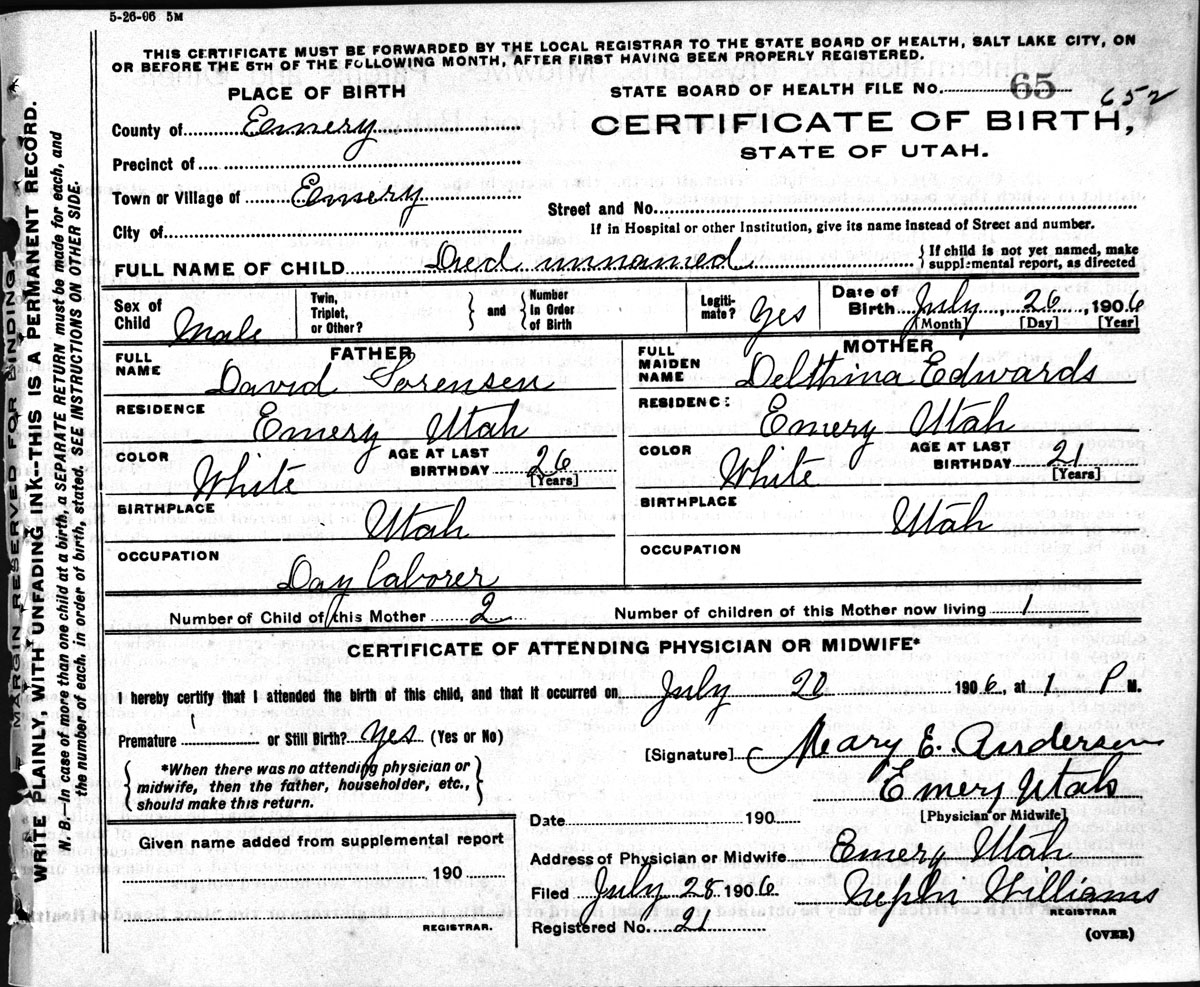 5-26-06 5M
THIS CERTIFICATE MUST BE FORWARDED BY THE LOCAL REGISTRAR TO THE STATE BOARD OF HEALTH, SALT LAKE CITY, ON
OR BEFORE THE 5TH OF THE FOLLOWING MONTH, AFTER FIRST HAVING BEEN PROPERLY REGISTERED.
PLACE OF BIRTH
STATE BOARD OF HEALTH FILE No. 65 652
County of Emery
CERTIFICATE OF BIRTH,
STATE OF UTAH.
Precinct of
Town or Village of Emery
Street and No.
City of
If in Hospital or other Institution, give its name instead of Street and number.
FULL NAME OF CHILD Died unnamed
{ If child is not yet named, make
supplemental report, as directed
Sex of Child Male
Twin, Triplet, or Other? } and { Number in Order of Birth
Legiti-mate? Yes
Date of Birth July, 26, 1906
[Month] [Day] [Year]
FATHER
FULL NAME David Sorensen
RESIDENCE Emery Utah
COLOR White
AGE AT LAST BIRTHDAY 26
[Years]
BIRTHPLACE Utah
OCCUPATION Day Laborer
MOTHER
FULL MAIDEN NAME Delthina Edwards
RESIDENC: Emery Utah
COLOR White
AGE AT LAST BIRTHDAY 21
[Years]
BIRTHPLACE Utah
OCCUPATION
Number of Child of this Mother 2
Number of children of this Mother now living 1
CERTIFICATE OF ATTENDING PHYSICIAN OR MIDWIFE*
I hereby certify that I attended the birth of this child, and that it occurred on July 20 1906, at 1 P M.
Premature or Still Birth? Yes (Yes or No)
[Signature] Mary E. Andersen
{ *When there was no attending physician or
midwife, then the father, householder, etc.,
should make this return. }
Emery Utah
[Physician or Midwife]
Date 190
Address of Physician or Midwife Emery Utah
Filed July 28 1906 Nephi Williams
REGISTRAR
Registered No. 21
(OVER)
Given name added from supplemental report
190
REGISTRAR.
MARGIN RESERVED FOR BINDING
WRITE PLAINLY, WITH UNFADING INK--THIS IS A PERMANENT RECORD.
N. B.—In case of more than one child at a birth, a SEPARATE RETURN must be made for each, and
the number of each, in order of birth, stated. SEE INSTRUCTIONS ON OTHER SIDE.